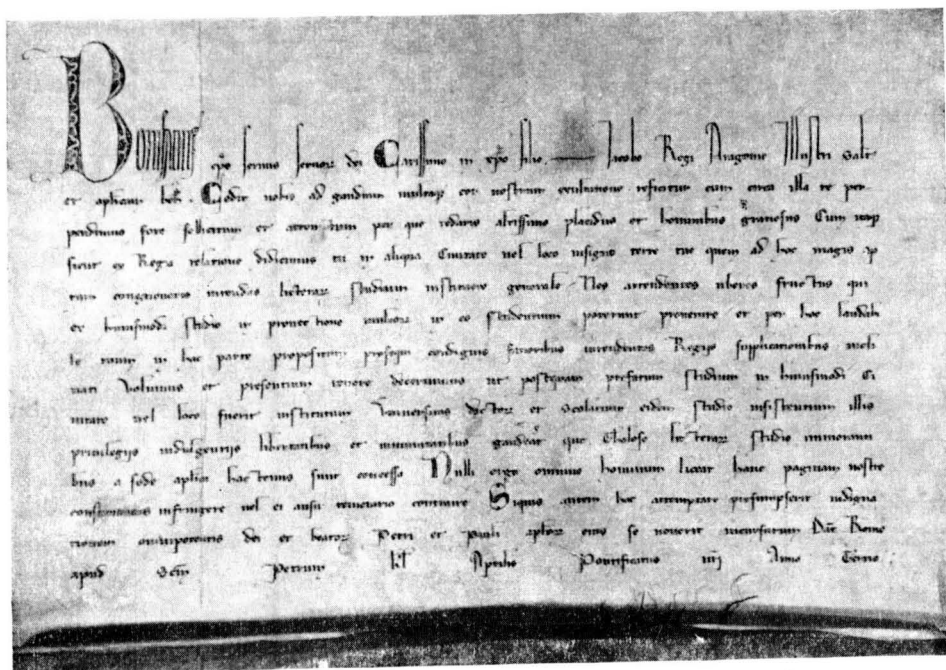 Bonifatius eps servus servor dei Carissimo in xpo filio Jacobo Regi Aragonie Illustri Salt
et aplicam ben. Cedit nobis ad gaudium cor nostrum exultatione reficitur cum circa illa te per
pendimus fore sollicitum et attentum per que reddaris altissimo placidus et hominibus gratiosus Cum itaq
sicut ex Regia relatione didicimus tu in aliqua Civitate vel loco insigni terre tue quem ad hoc magis ap
tum cognoveris intendas litterar studium instituere generale Nos attendentes uberes fructus qui
ex huiusmodi studio in provectione multor in eo studentium poterunt provenire et per hoc laudabi
le tuum in hac parte propositum prosequi condignis favoribus intendentes Regiis supplicationibus incli
nati Volumus et presentium tenore decernimus ut postquam prefatum studium in huiusmodi Ci
vitate vel loco fuerit institutum Universitas doctor et scolarium eidem studio insistentium illis
privilegiis indulgentiis libertatibus et immunitatibus gaudeat que Tholose litterar studio immoranti
bus a sede aplica hactenus sunt concessa Nulli ergo omnino hominum liceat hanc paginam nostre
constitutionis infringere vel ei ausu temerario contraire Siquis autem hoc attemptare presumpserit indigna
tionem omnipotentis dei et beator Petri et Pauli aplor eius se noverit incursurum Dat Rome
apud Scm Petrum kl Aprilis Pontificatus Anno